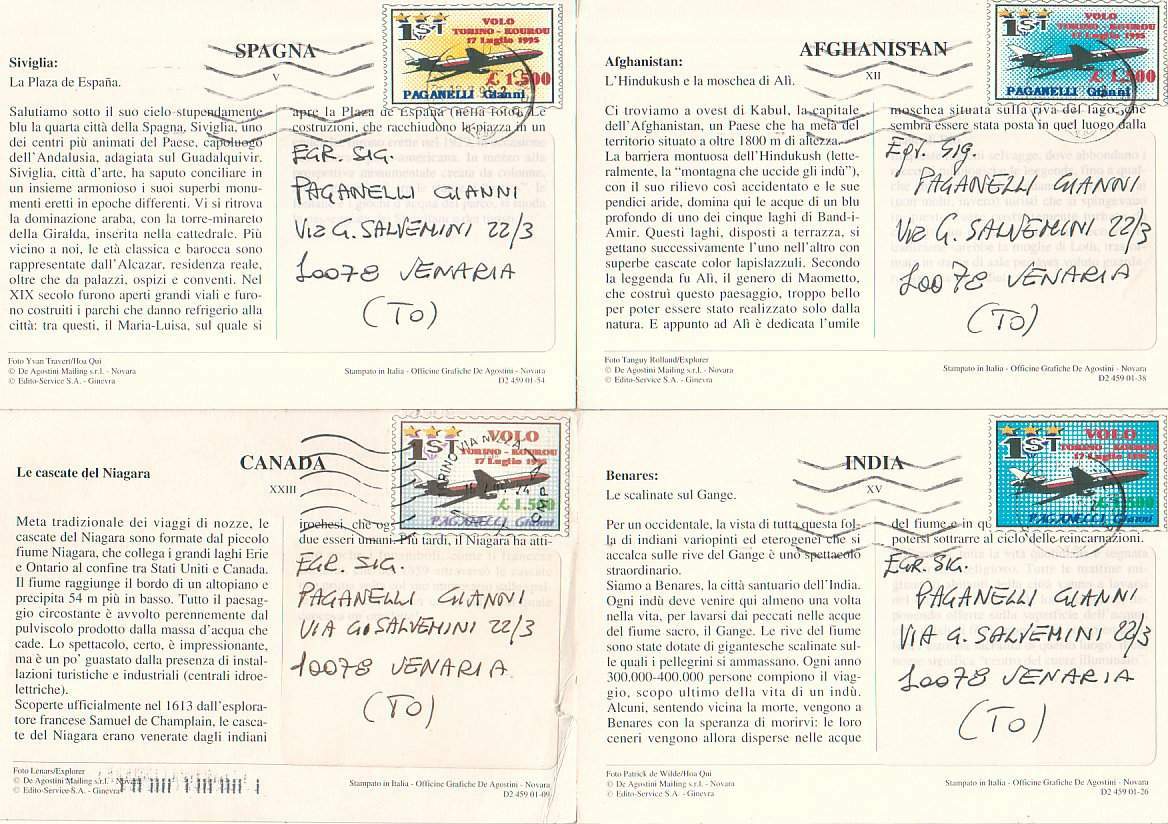 SPAGNA
V
Siviglia:
La Plaza de España.
Salutiamo sotto il suo cielo stupendamente
blu la quarta città della Spagna, Siviglia, uno
dei centri più animati del Paese, capoluogo
dell'Andalusia, adagiata sul Guadalquivir.
Siviglia, città d'arte, ha saputo conciliare in
un insieme armonioso i suoi superbi monu-
menti eretti in epoche differenti. Vi si ritrova
la dominazione araba, con la torre-minareto
della Giralda, inserita nella cattedrale. Più
vicino a noi, le età classica e barocca sono
rappresentate dall'Alcazar, residenza reale,
oltre che da palazzi, ospizi e conventi. Nel
XIX secolo furono aperti grandi viali e furo-
no costruiti i parchi che danno refrigerio alla
città: tra questi, il Maria-Luisa, sul quale si
apre la Plaza de España (nella foto). Le
costruzioni, che racchiudono la piazza in un
1ST
VOLO
TORINO - KOUROU
17 Luglio 1995
£ 1.500
PAGANELLI Gianni
EGR. SIG.
PAGANELLI GIANNI
VIA G. SALVEMINI 22/3
10078 VENARIA
(TO)
Foto Yvan Travert/Hoa Qui
© De Agostini Mailing s.r.l. - Novara
© Edito-Service S.A. - Ginevra
Stampato in Italia - Officine Grafiche De Agostini - Novara
D2 459 01-54
AFGHANISTAN
XII
Afghanistan:
L'Hindukush e la moschea di Alì.
Ci troviamo a ovest di Kabul, la capitale
dell'Afghanistan, un Paese che ha metà del
territorio situato a oltre 1800 m di altezza.
La barriera montuosa dell'Hindukush (lette-
ralmente, la “montagna che uccide gli indù”),
con il suo rilievo così accidentato e le sue
pendici aride, domina qui le acque di un blu
profondo di uno dei cinque laghi di Band-i-
Amir. Questi laghi, disposti a terrazza, si
gettano successivamente l'uno nell'altro con
superbe cascate color lapislazzuli. Secondo
la leggenda fu Alì, il genero di Maometto,
che costruì questo paesaggio, troppo bello
per poter essere stato realizzato solo dalla
natura. E appunto ad Alì è dedicata l'umile
moschea situata sulla riva del lago, che
sembra essere stata posta in quel luogo dalla
1ST
VOLO
TORINO - KOUROU
17 Luglio 1995
£ 1.500
PAGANELLI Gianni
Egr. Sig.
PAGANELLI GIANNI
VIA G. SALVEMINI 22/3
10078 VENARIA
(TO)
Foto Tanguy Rolland/Explorer
© De Agostini Mailing s.r.l. - Novara
© Edito-Service S.A. - Ginevra
Stampato in Italia - Officine Grafiche De Agostini - Novara
D2 459 01-38
CANADA
XXIII
Le cascate del Niagara
Meta tradizionale dei viaggi di nozze, le
cascate del Niagara sono formate dal piccolo
fiume Niagara, che collega i grandi laghi Erie
e Ontario al confine tra Stati Uniti e Canada.
Il fiume raggiunge il bordo di un altopiano e
precipita 54 m più in basso. Tutto il paesag-
gio circostante è avvolto perennemente dal
pulviscolo prodotto dalla massa d'acqua che
cade. Lo spettacolo, certo, è impressionante,
ma è un po' guastato dalla presenza di instal-
lazioni turistiche e industriali (centrali idroe-
lettriche).
Scoperte ufficialmente nel 1613 dall'esplora-
tore francese Samuel de Champlain, le casca-
te del Niagara erano venerate dagli indiani
irochesi, che og
due esseri umani. Più tardi, il Niagara ha atti-
1ST
VOLO
TORINO - KOUROU
17 Luglio 1995
£ 1.500
PAGANELLI Gianni
EGR. SIG.
PAGANELLI GIANNI
VIA G. SALVEMINI 22/3
10078 VENARIA
(TO)
Foto Lenars/Explorer
© De Agostini Mailing s.r.l. - Novara
© Edito-Service S.A. - Ginevra
Stampato in Italia - Officine Grafiche De Agostini - Novara
D2 459 01-09
INDIA
XV
Benares:
Le scalinate sul Gange.
Per un occidentale, la vista di tutta questa fol-
la di indiani variopinti ed eterogenei che si
accalca sulle rive del Gange è uno spettacolo
straordinario.
Siamo a Benares, la città santuario dell'India.
Ogni indù deve venire qui almeno una volta
nella vita, per lavarsi dai peccati nelle acque
del fiume sacro, il Gange. Le rive del fiume
sono state dotate di gigantesche scalinate sul-
le quali i pellegrini si ammassano. Ogni anno
300.000-400.000 persone compiono il viag-
gio, scopo ultimo della vita di un indù.
Alcuni, sentendo vicina la morte, vengono a
Benares con la speranza di morirvi: le loro
ceneri vengono allora disperse nelle acque
del fiume e in qu
potersi sottrarre al ciclo delle reincarnazioni.
1ST
VOLO
TORINO - KOUROU
17 Luglio 1995
PAGANELLI Gianni
EGR. SIG.
PAGANELLI GIANNI
VIA G. SALVEMINI 22/3
10078 VENARIA
(TO)
Foto Patrick de Wilde/Hoa Qui
© De Agostini Mailing s.r.l. - Novara
© Edito-Service S.A. - Ginevra
Stampato in Italia - Officine Grafiche De Agostini - Novara
D2 459 01-26